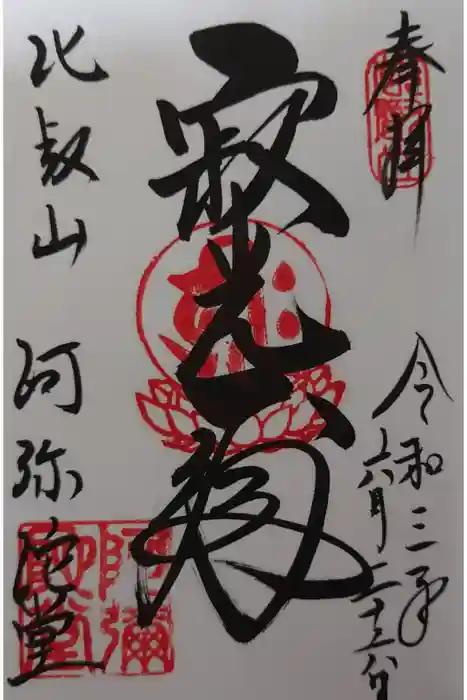 奉拝
令和三年
六月二十五日
寂光殿
比叡山 阿弥陀堂
阿彌陀堂